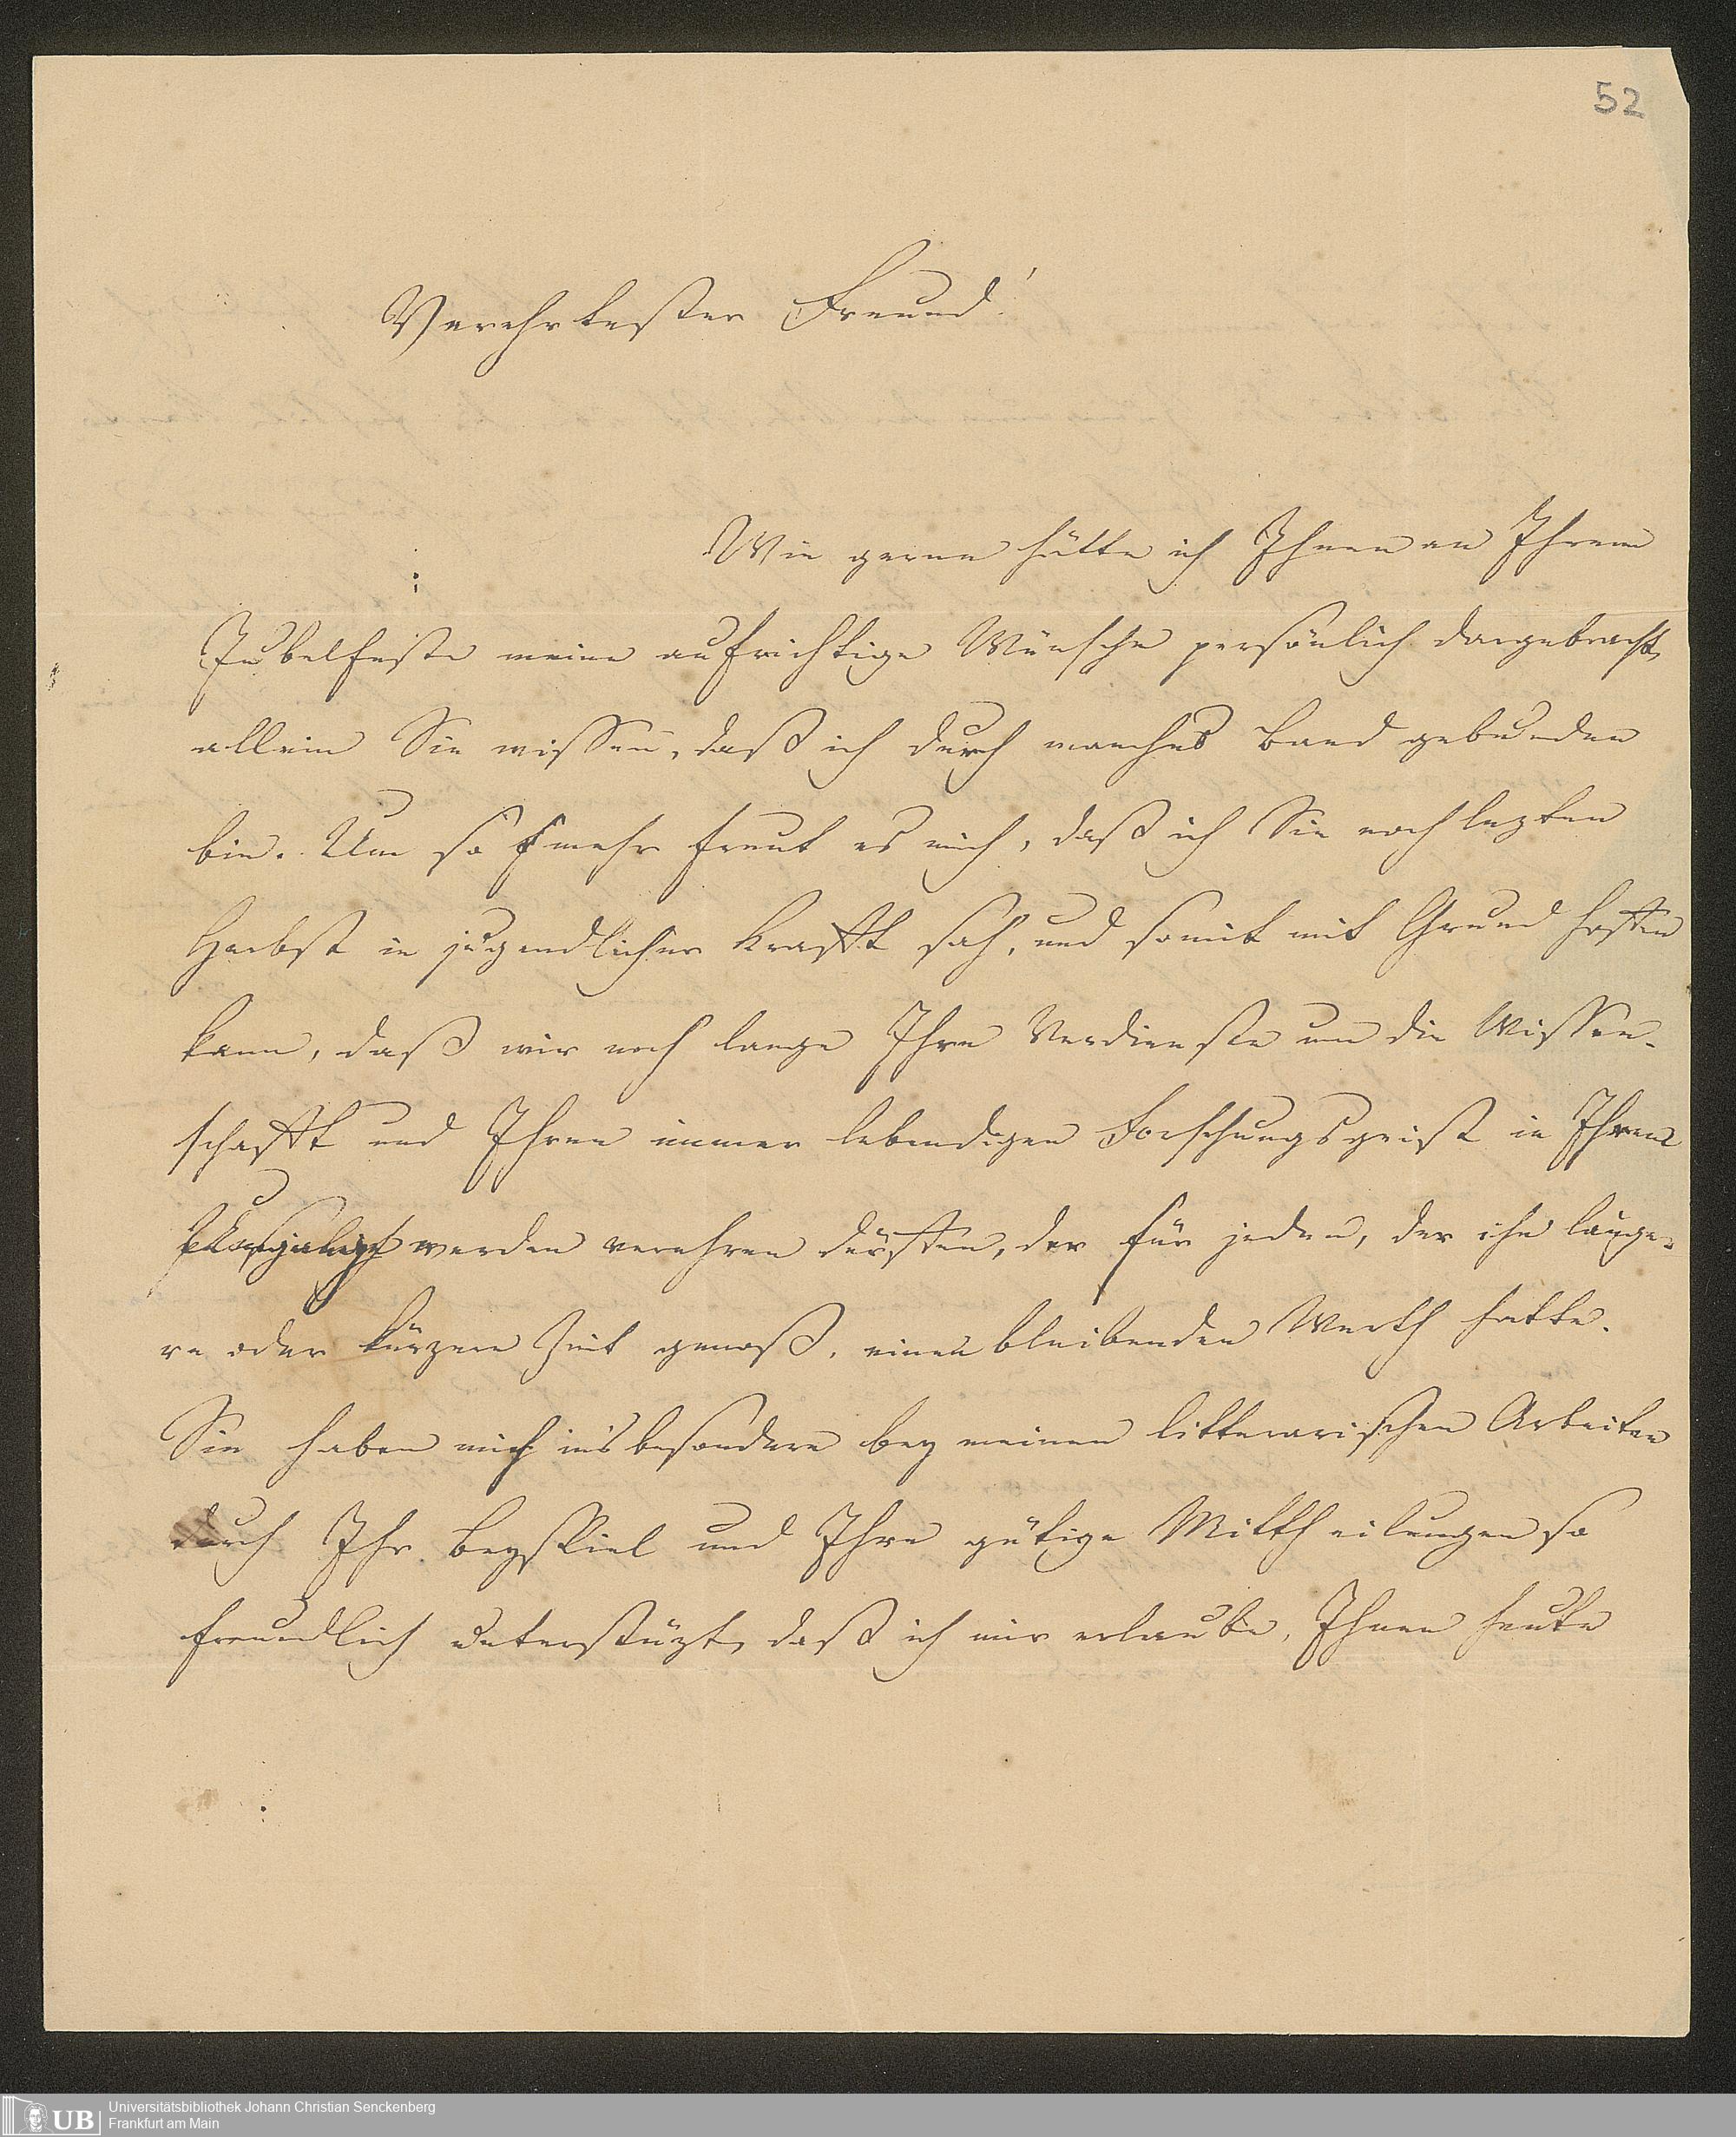 52
Verehrtester Freund!
Wie gerne hätte ich Ihnen an Ihrem
Jubelfeste meine aufrichtige Wünsche persönlich dargebracht,
allein Sie wissen, daß ich durch manches Band gebunden
bin. Um so mehr freut es mich, daß ich Sie noch lezten
Herbst in jugendlicher Krafft sah, und somit mit Grund hoffen
kann, daß wir noch lange Ihre Verdienste um die Wissen-
schafft und Ihren immer lebendigen Forschungsgeist in Ihrem
werden verehren dürffen, der für jeden, der ihn länge-
re oder kürzere Zeit genoß, einen bleibenden Werth hatte.
Sie haben mich insbesondere bey meinen litterarischen Arbeiten
durch Ihr Beyspiel und Ihre gütige Mittheilungen so
freundlich unterstüzt, daß ich mir erlaube, Ihnen heute
UB
Universitätsbibliothek Johann Christian Senckenberg
Frankfurt am Main